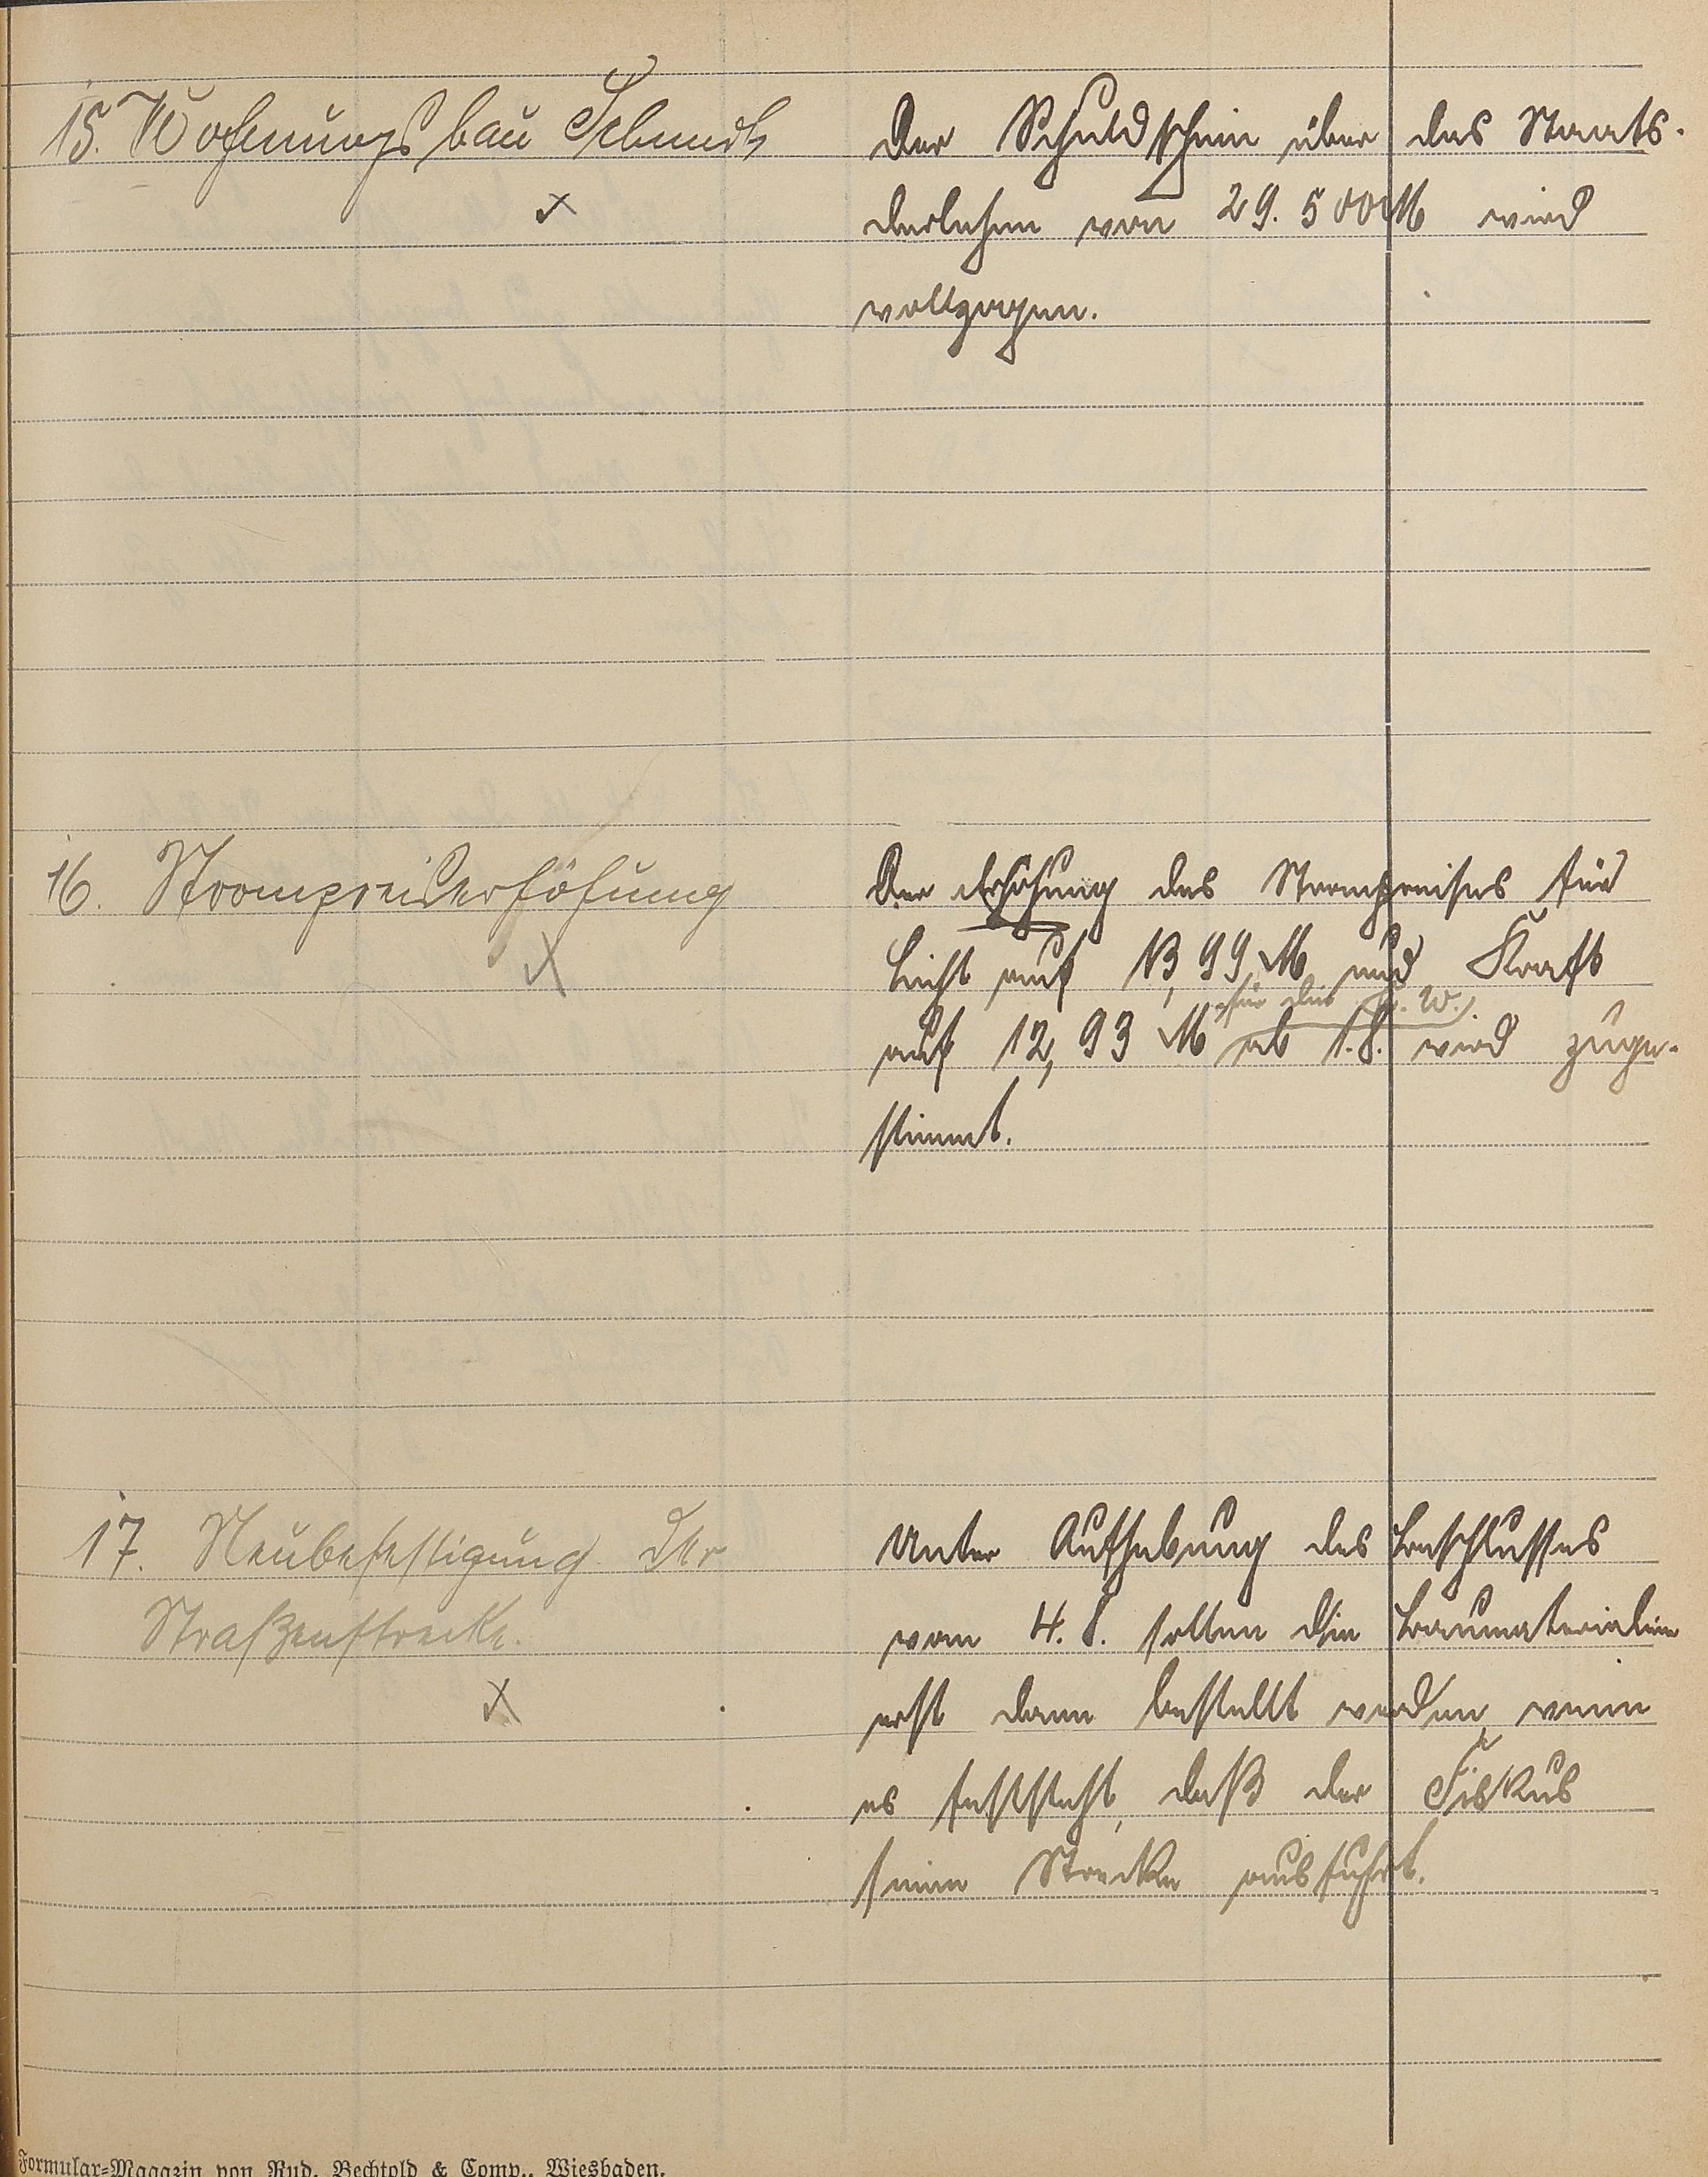 15. Wohnungsbau Schmidt
x
Der Schuldschein über das Staats-
darlehen von 29.500 M wird
vollzogen.
16. Strompreiserhöhung
x
Der Erhöhung des Strompreises für
Licht auf 13,99 M und Kraft
für die K.W.
auf 12,93 M ab 1.8. wird zuge-
stimmt.
17. Neubefestigung der
Straßenstrecke.
x
Unter Aufhebung des Beschlusses
vom 4.8. sollen die Baumaterialien
erst dann bestellt werden, wenn
es feststeht, daß der Fiskus
seine Strecke ausführt.
Formular-Magazin von Rud. Bechtold & Comp., Wiesbaden.